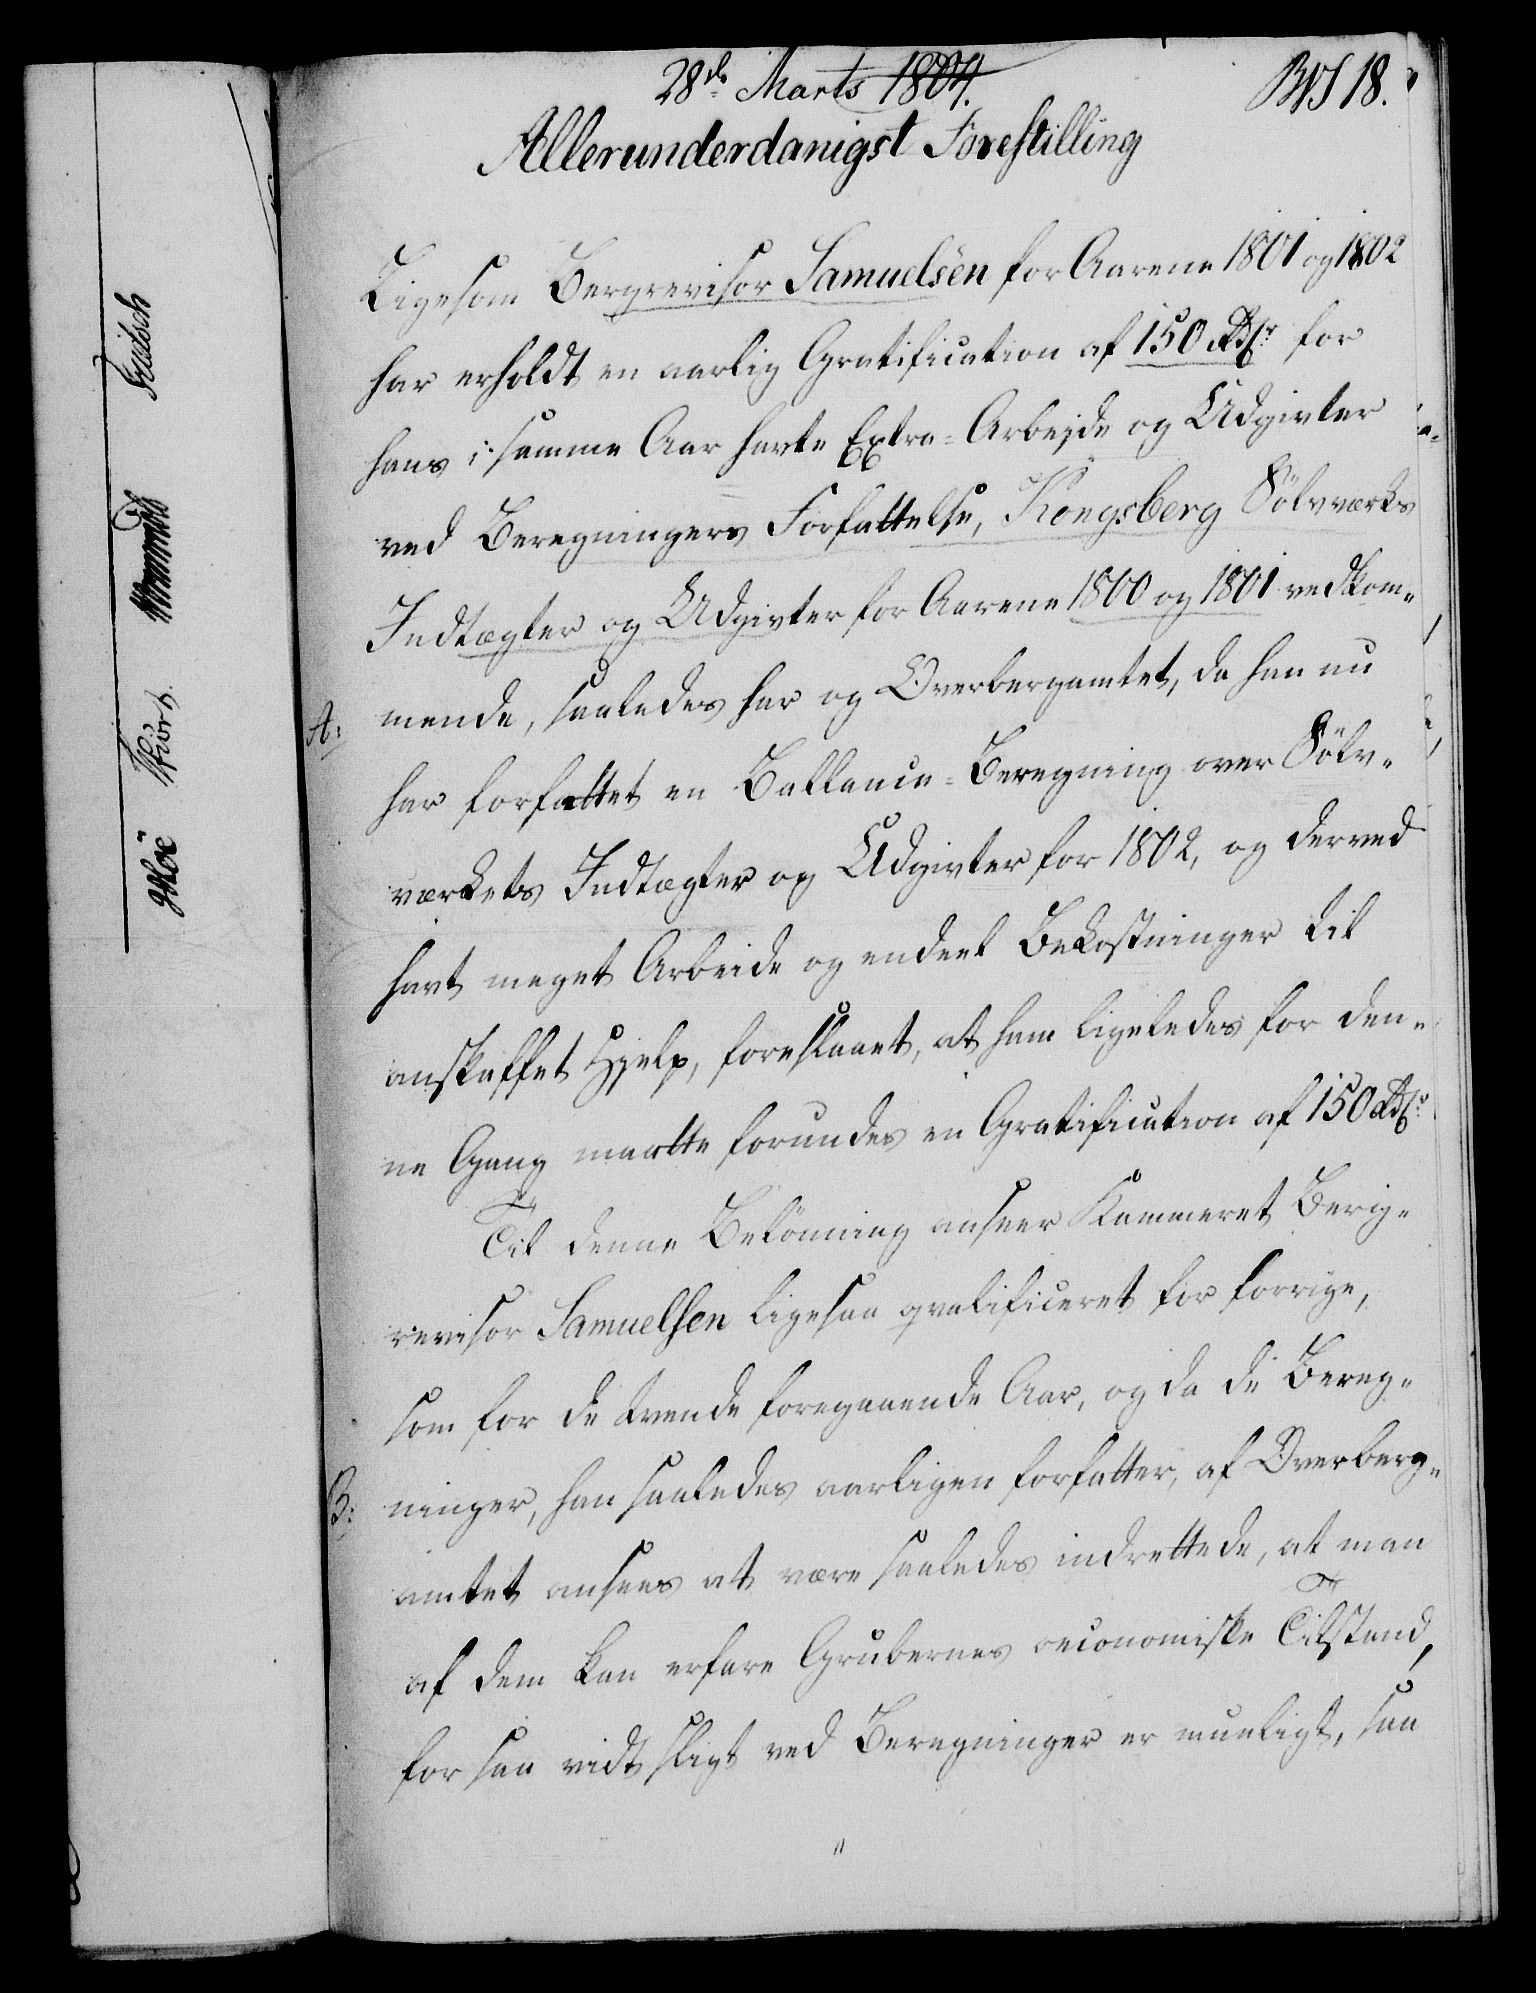 28de Marts 1804.
BVS 18.
Allerunderdanigst Forestilling
Ligesom Bergrevisor Samuelsen for Aarene 1801 og 1802
har erholdt en aarlig Gratification af 150 Rdlr for
hans i samme Aar havte Extra-Arbejde og Udgivter
ved Beregningers Forfattelse, Kongsberg Sölvværks
Indtægter og Udgivter for Aarene 1800 og 1801 vedkom-
A: mende, saaledes har og Overbergamtet, da han nu
har forfattet en Ballance-Beregning over Sölv-
værkets Indtægter og Udgivter for 1802, og derved
havt meget Arbeide og endeel Bekostninger til
anskaffet Hjelp, foreslaaet, at ham ligeledes for den-
ne Gang maatte forundes en Gratification af 150 Rdlr
Til denne Belönning anseer Kammeret Berig-
revisor Samuelsen ligesaa qvalificeret for forrige,
som for de tvende foregaaende Aar, og da de Bereg-
B: ninger, han saaledes aarligen forfatter, af Overberg-
amtet ansees at være saaledes indrettede, at man
af dem kan erfare Grubernes oeconomiske Tilstand,
for saa vidt sligt ved Beregninger er mueligt, saa